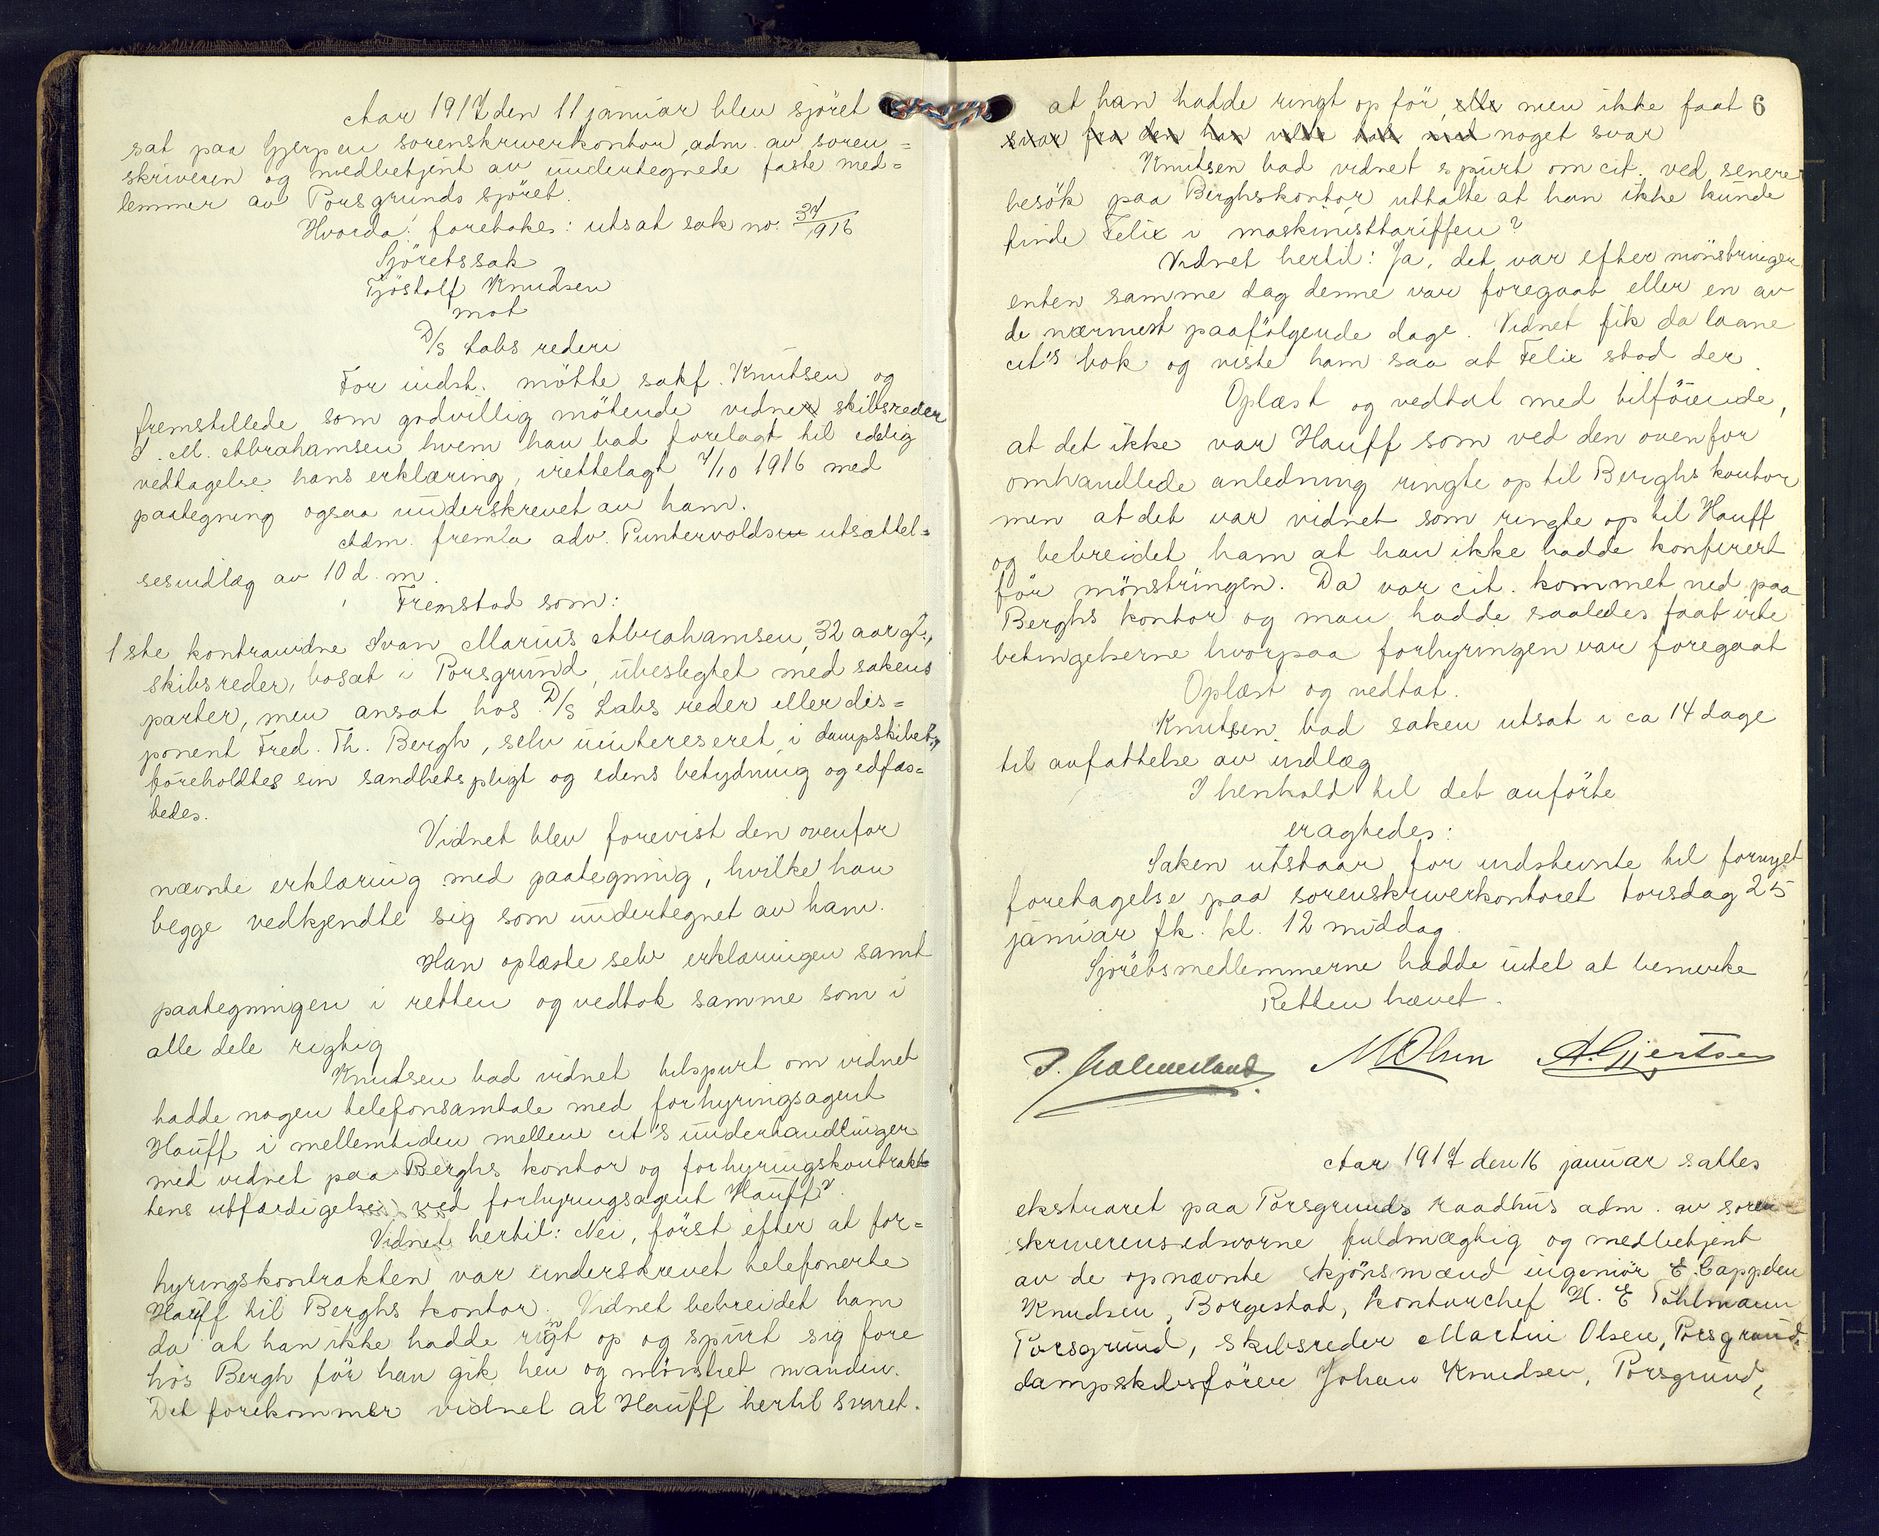 Aar 1917 den 11 januar blev sjöret
sat paa Gjerpen sorenskriverkontor, adm. av soren=
skriveren og medbetjent av undertegnede faste med=
lemmer av Porsgrunds sjöret.
Hvorda: foretokes: utsat sak no. 37/1916
Sjöretssak
Tjöstolf Knudsen
mot
D/S Labs rederi
For indst. mötte sakf. Knutsen og
fremstillede som godvillig mötende vidne skibsreder
I. M. Abrahamsen hvem han bad forelagt til edelig
vedtagelse hans erklæring, irettelagt 7/10 1916 med
paategning ogsaa underskrevet av ham.
Adm. fremla adv. Puntervolds utsættel=
sesindlæg av 10 d. m.
Fremstod som:
1 ste kontravidne Ivan Marius Abrahamsen, 32 aar gl.,
skibsreder, bosat i Porsgrund, ubeslegtet med sakens
parter, men ansat hos D/S Labs reder eller dis=
ponent Fred. Th. Bergh, selv uintereseret i dampskibet,
foreholdtes sin sandhetspligt og edens betydning og edfæs=
tedes.
Vidnet blev forevist den ovenfor
nævnte erklæring med paategning, hvilke han
begge vedkjendte sig som undertegnet av ham.
Han oplæste selv erklæringen samt
paategningen i retten og vedtok samme som i
alle dele rigtig
Knudsen bad vidnet tilspurt om vidnet
hadde nogen telefonsamtale med forhyringsagent
Hauff i mellemtiden mellem cit's underhandlinger
med vidnet paa Berghs kontor og forhyringskontrak=
tens utfærdigelse ved forhyringsagent Hauff?
Vidnet hertil: Nei, först efter at for=
hyringskontrakten var underskrevet telefonerte
Hauff til Berghs kontor. Vidnet bebreidet ham
da at han ikke hadde ringt op og spurt sig fore
hos Bergh för han gik hen og mönstret manden.
Det forekommer vidnet at Hauff hertil svaret.
6
at han hadde ringt op för, men ikke faat
svar fra den han vilde tale med noget svar
Knutsen bad vidnet spurt om cit. ved senere
besök paa Berghs kontor uttalte at han ikke kunde
finde Felix i maskinisttariffen?
Vidnet hertil: Ja, det var efter mönstringen
enten samme dag denne var foregaat eller en av
de nærmest paafölgende dage. Vidnet fik da laane
cit's bok og viste ham saa at Felix stod der.
Oplæst og vedtat med tilföiende,
at det ikke var Hauff som ved den ovenfor
omhandlede anledning ringte op til Berghs kontor
men at det var vidnet som ringte op til Hauff
og bebreidet ham at han ikke hadde konferert
för mönstringen. Da var cit. kommet ned paa
Berghs kontor og man hadde saaledes faat vite
betingelserne hvorpaa forhyringen var foregaat
Oplæst og vedtat.
Knutsen bad saken utsat i ca 14 dage
til avfattelse av indlæg
I henhold til det anförte
eragtedes:
Saken utstaar for indstevnte til fornyet
foretagelse paa sorenskriverkontoret torsdag 25
januar fk. kl. 12 middag.
Sjöretsmedlemmerne hadde intet at bemerke
Retten hævet.
MOlsen A. Gjertsen
Aar 1917 den 16 januar sattes
ekstraret paa Porsgrunds raadhus adm. av soren
skriverens edsvorne fuldmægtig og medbetjent
av de opnævnte skjönsmænd ingeniör E. Cappelen
Knudsen, Borgestad, kontorchef H. E. Pöhlmann
Porsgrund, skibsreder Martin Olsen, Porsgrund,
dampskibsförer Johan Knudsen, Porsgrund,